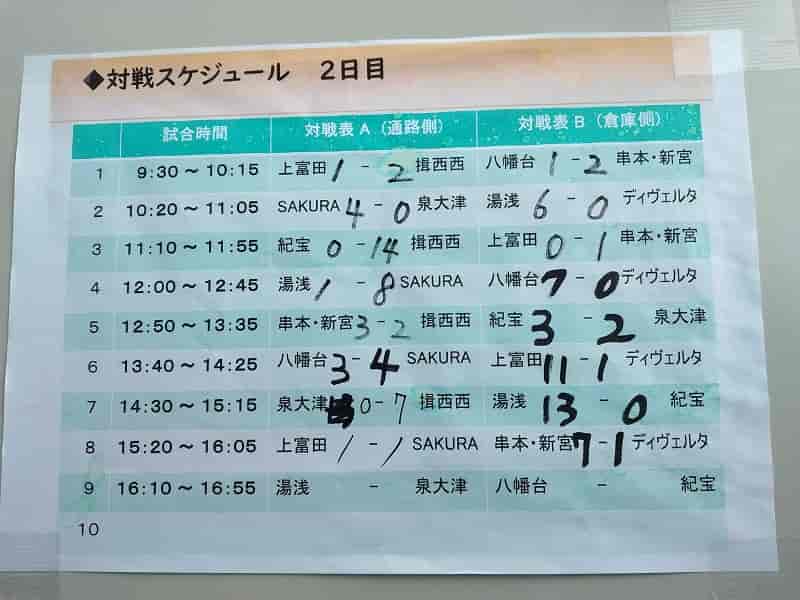 ◆対戦スケジュール 2日目
試合時間 対戦表A（通路側） 対戦表B（倉庫側）
1 9:30～10:15 上富田 1 - 2 揖西西 八幡台 1 - 2 串本・新宮
2 10:20～11:05 SAKURA 4 - 0 泉大津 湯浅 6 - 0 ディヴェルタ
3 11:10～11:55 紀宝 0 - 14 揖西西 上富田 0 - 1 串本・新宮
4 12:00～12:45 湯浅 1 - 8 SAKURA 八幡台 7 - 0 ディヴェルタ
5 12:50～13:35 串本・新宮 3 - 2 揖西西 紀宝 3 - 2 泉大津
6 13:40～14:25 八幡台 3 - 4 SAKURA 上富田 11 - 1 ディヴェルタ
7 14:30～15:15 泉大津 0 - 7 揖西西 湯浅 13 - 0 紀宝
8 15:20～16:05 上富田 1 - 1 SAKURA 串本・新宮 7 - 1 ディヴェルタ
9 16:10～16:55 湯浅 - 泉大津 八幡台 - 紀宝
10